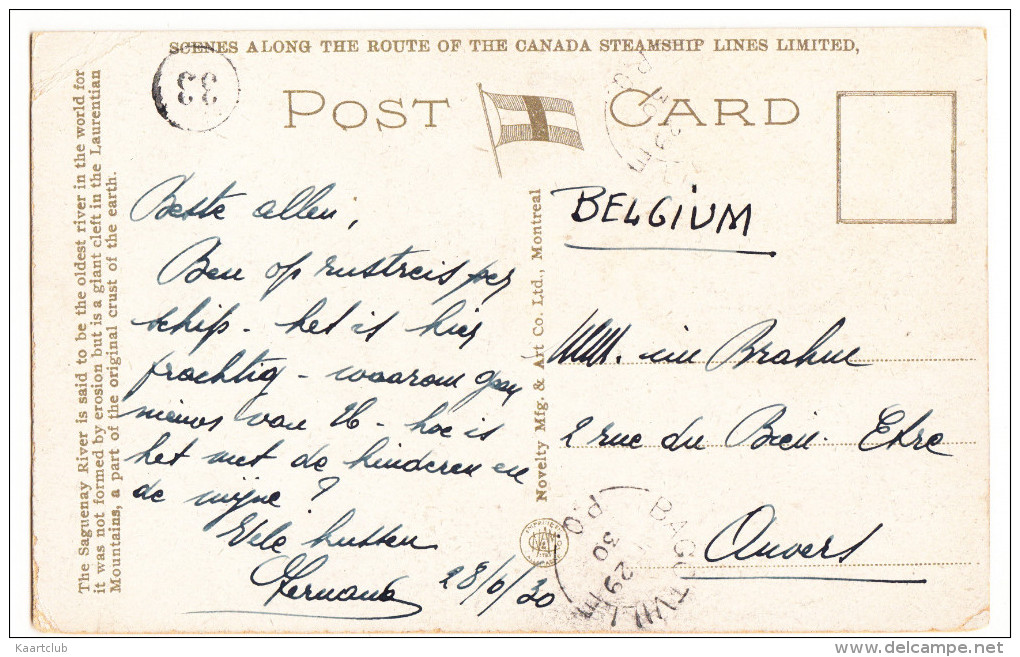 SCENES ALONG THE ROUTE OF THE CANADA STEAMSHIP LINES LIMITED,
33
POST CARD
The Saguenay River is said to be the oldest river in the world for
it was not formed by erosion but is a giant cleft in the Laurentian
Mountains, a part of the original crust of the earth.
Beste allen,
Ben op rustreis per
schip - het is hier
prachtig - waarom geen
nieuws van U - hoe is
het met de kinderen en
de mijne ?
Vele kussen
Fernand
28/6/30
Novelty Mfg. & Art Co. Ltd., Montreal
BELGIUM
Brahm
2 rue du Bien-Etre
Anvers
BAGOTVILLE
29
30
P.Q.
Kaartclub
www.delcampe.net